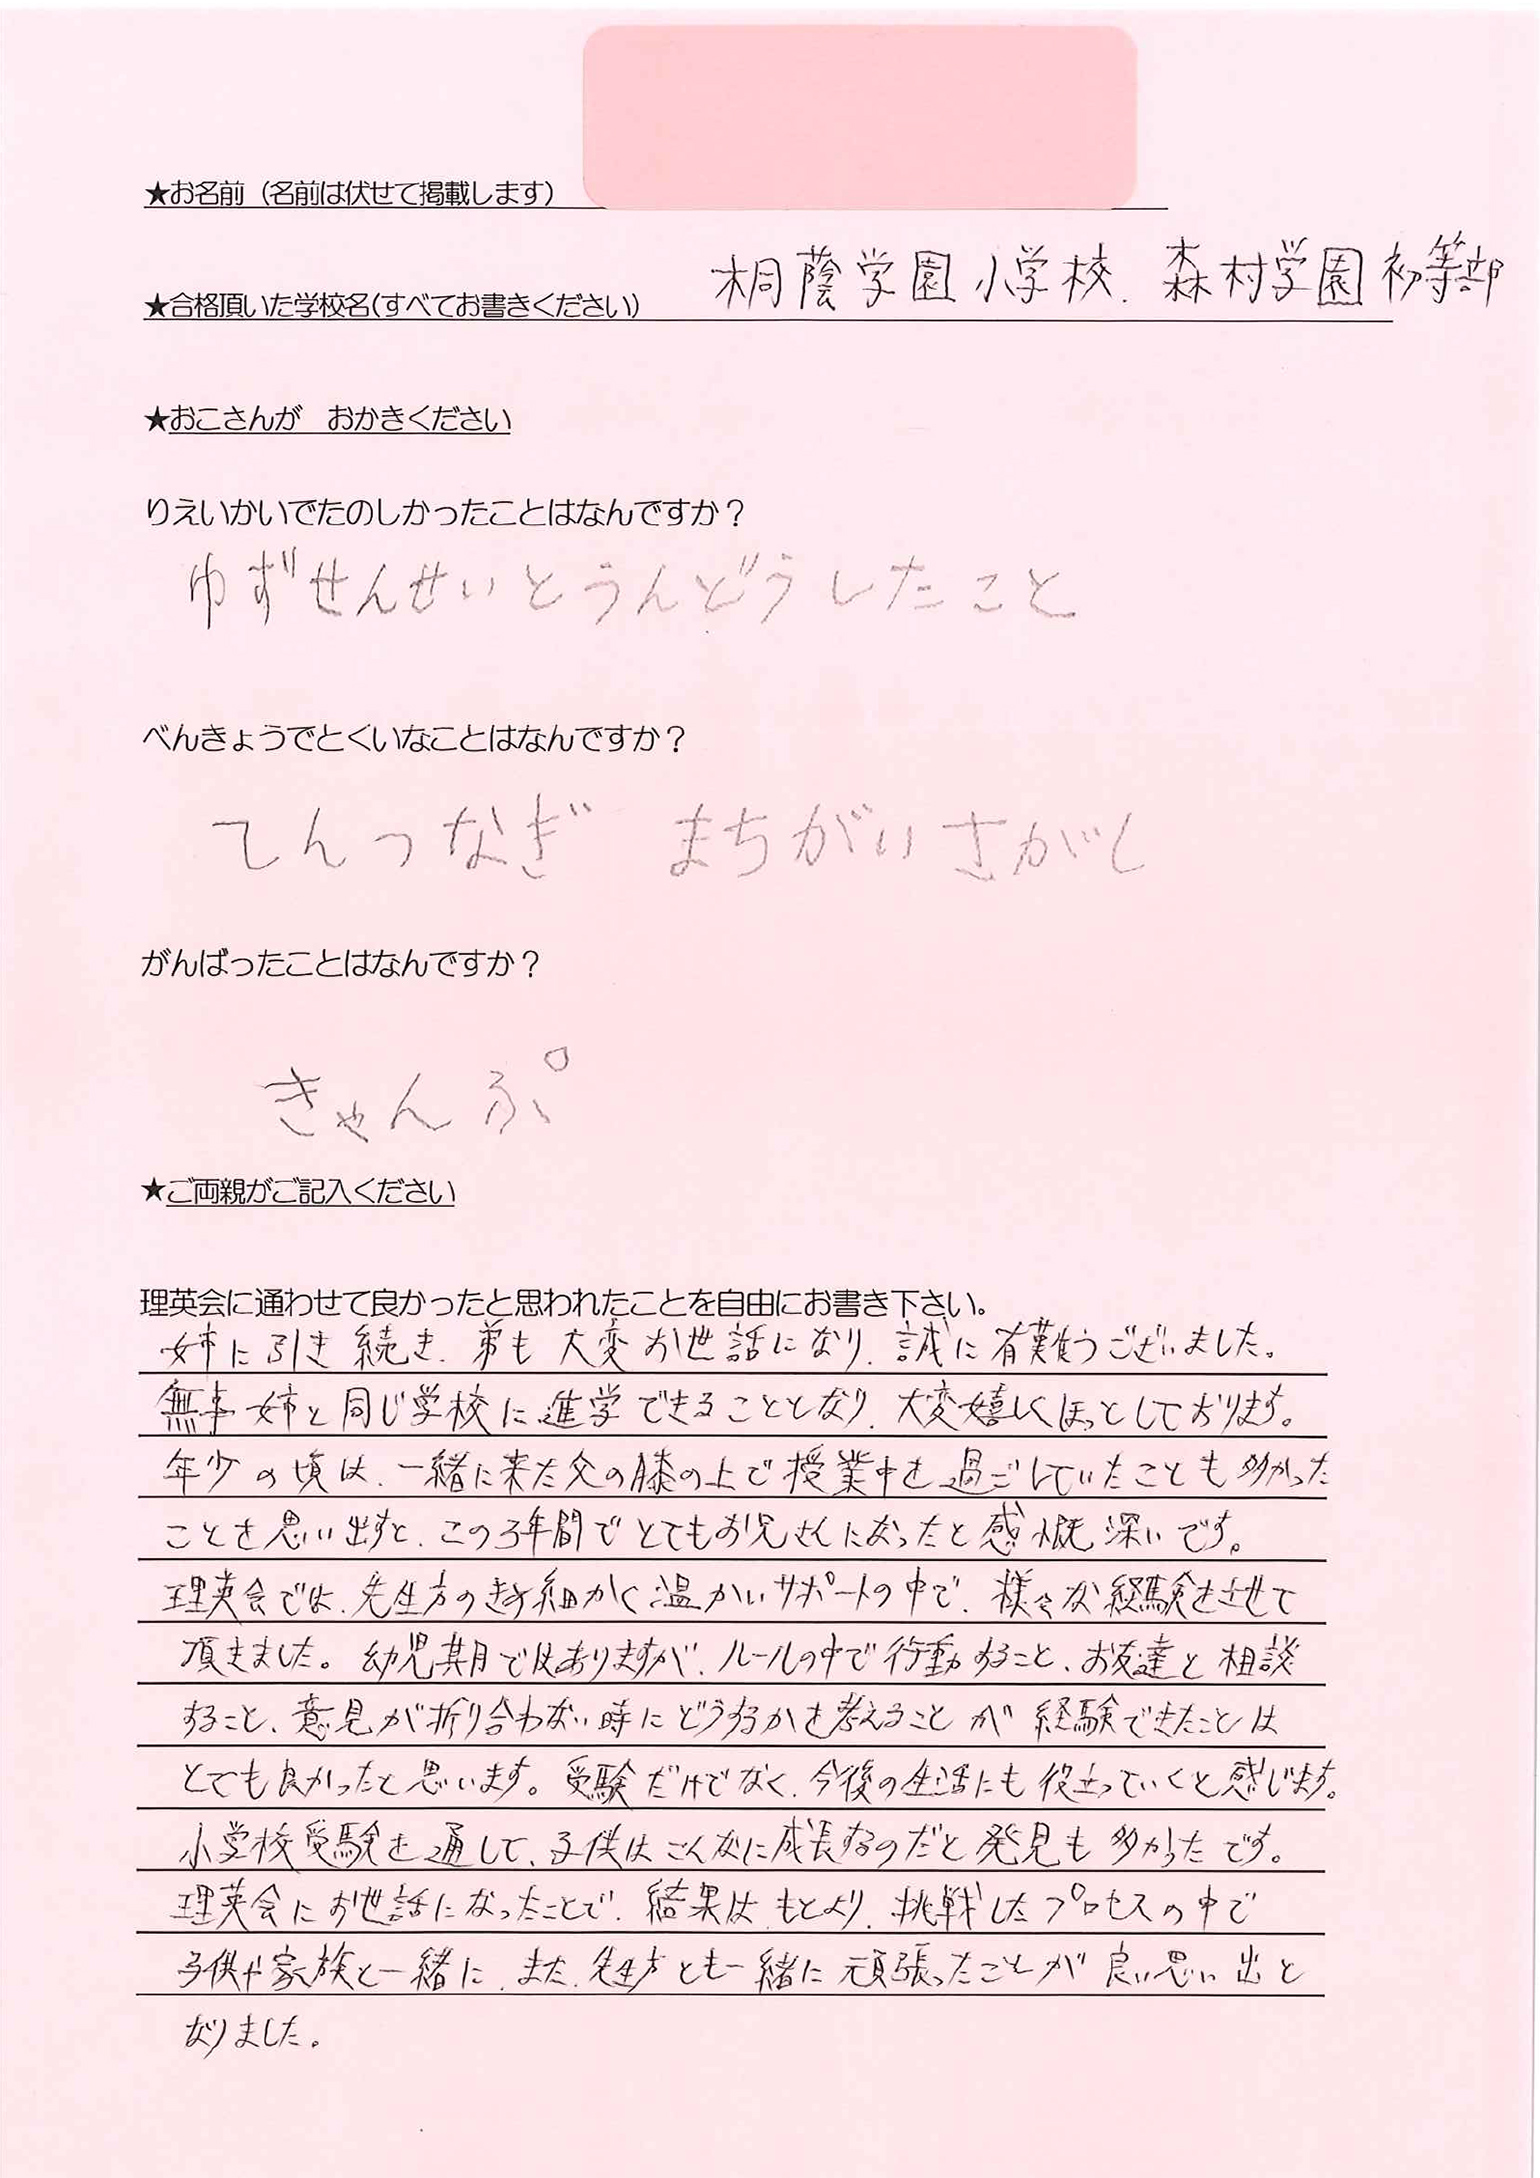 ★お名前（名前は伏せて掲載します）
★合格頂いた学校名(すべてお書きください) 桐蔭学園小学校、森村学園初等部
★おこさんが　おかきください
りえいかいでたのしかったことはなんですか？
ゆずせんせいとうんどうしたこと
べんきょうでとくいなことはなんですか？
てんつなぎ　まちがいさがし
がんばったことはなんですか？
きゃんぷ
★ご両親がご記入ください
理英会に通わせて良かったと思われたことを自由にお書き下さい。
姉に引き続き、弟も大変お世話になり、誠に有難うございました。
無事姉と同じ学校に進学できることとなり、大変嬉しくほっとしております。
年少の頃は、一緒に来た父の膝の上で授業中を過ごしていたことも多かった
ことを思い出すと、この3年間でとてもお兄さんになったと感慨深いです。
理英会では、先生方のきめ細かく温かいサポートの中で、様々な経験をさせて
頂きました。幼児期ではありますが、ルールの中で行動すること、お友達と相談
すること、意見が折り合わない時にどうするかを考えることが経験できたことは
とても良かったと思います。受験だけでなく、今後の生活にも役立っていくと感じます。
小学校受験を通して、子供はこんなに成長するのだと発見も多かったです。
理英会にお世話になったことで、結果はもとより、挑戦したプロセスの中で
子供や家族と一緒に、また、先生方とも一緒に頑張ったことが良い思い出と
なりました。